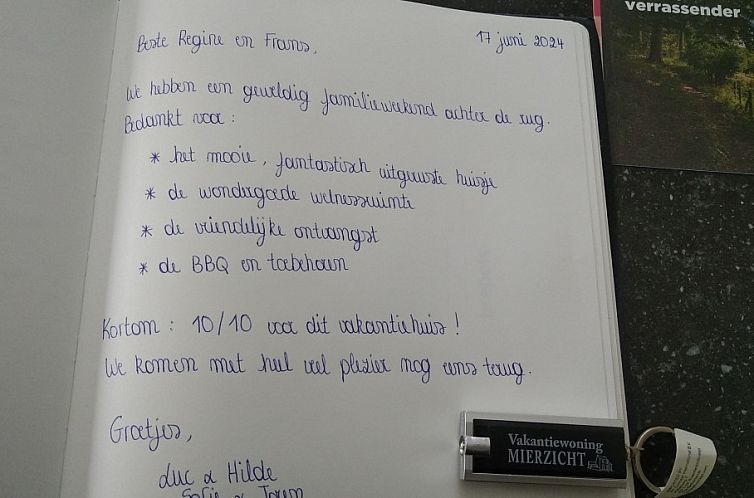 verrassender
17 juni 2024
Beste Regine en Frans,
We hebben een geweldig familieweekend achter de rug.
Bedankt voor :
* het mooie, fantastisch uitgeruste huisje
* de wondergoede welnessruimte
* de vriendelijke ontvangst
* de BBQ en toebehoren
Kortom : 10/10 voor dit vakantiehuis !
We komen met heel veel plezier nog eens terug.
Groetjes,
Luc & Hilde
Vakantiewoning
MIERZICHT